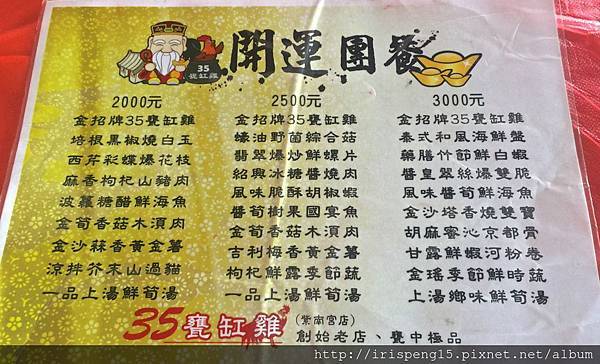 35
甕缸雞
開運團餐
2000元
金招牌35甕缸雞
培根黑椒燒白玉
西芹彩蝶爆花枝
麻香枸杞山豬肉
波蘿糖醋鮮海魚
金筍香菇木須肉
金沙蒜香黃金薯
涼拌芥末山過貓
一品上湯鮮筍湯
2500元
金招牌35甕缸雞
蠔油野菌綜合菇
翡翠爆炒鮮螺片
紹興冰糖醬燒肉
風味脆酥胡椒蝦
醬筍樹果國宴魚
金筍香菇木須肉
吉利梅香黃金薯
枸杞鮮露季節蔬
一品上湯鮮筍湯
3000元
金招牌35甕缸雞
泰式和風海鮮盤
藥膳竹節鮮白蝦
醬皇翠絲爆雙脆
風味醬筍鮮海魚
金沙塔香燒雙寶
胡麻蜜沁京都骨
甘露鮮蝦河粉卷
金瑤季節鮮時蔬
上湯鄉味鮮筍湯
35甕缸雞
(紫南宮店)
創始老店、甕中極品
http://irispeng15.pixnet.net/album